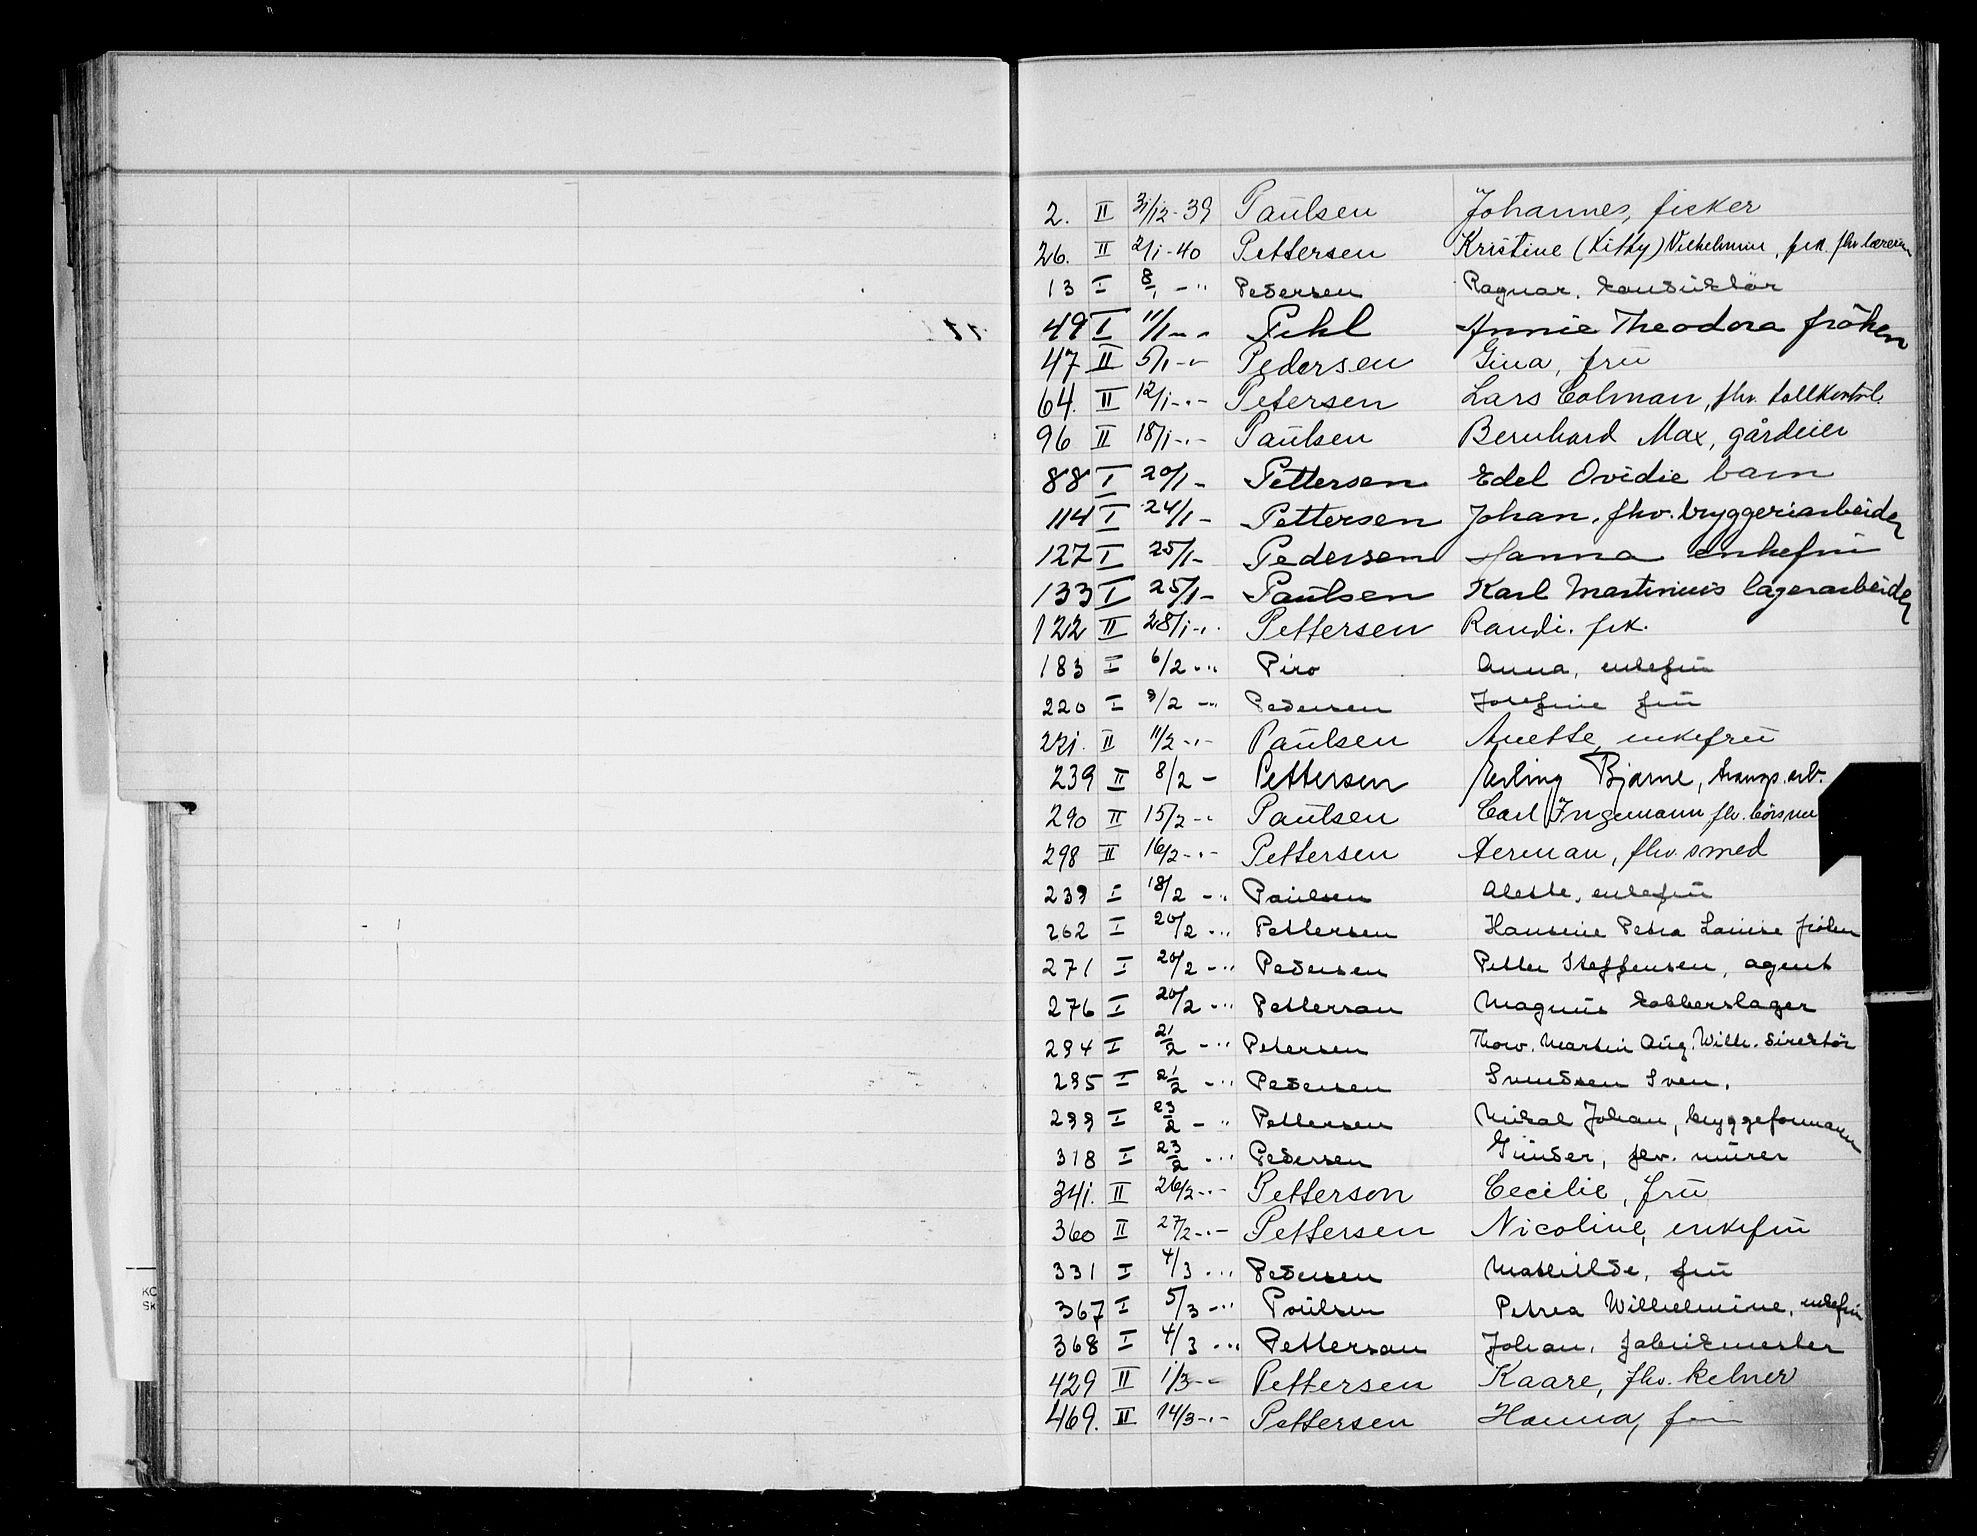 2. II 31/12-39 Paulsen Johannes, fisker
26. II 2/1-40 Pettersen Kristine (Kitty) Vilhelmine, frk. fhv. lærerin
13 I 8/1 - " Pedersen Ragnar. konduktör
49 I 11/1 - " Pihl Annie Theodora fröken
47 II 5/1 - " Pedersen Gina, frü
64. II 12/1 - " - Petersen Lars Colman, fhv. tollkontrl.
96 II 18/1 - " - Paulsen Bernhard Max, gårdeier
88 I 20/1 - Pettersen Edel Ovidie barn
114 I 24/1 - Pettersen Johan. fhv. bryggeriarbeider
127 I 25/1 - Pedersen Hanna enkefru
133 I 25/1 - Paulsen Karl Martinius lagerarbeider
122 II 28/1 - " Pettersen Randi. frk.
183 I 6/2 - " Piro Anna, enkefrü
220 I 9/2 - " Pedersen Josefine frü
221. II 11/2 - " - Paulsen Anette, enkefrü
239 II 8/2 - Pettersen Erling Bjarne, transp. arb.
290 II 15/2 - " Paulsen Carl Ingemann fhv.
298 II 16/2 - " - Pettersen Herman, fhv. smed
239 I 18/2 - " Paülsen Alette, enkefrü
262 I 20/2 - " Pettersen Hansine Petra Louise fröken
271 I 20/2 - " Pedersen Petter Steffensen, agent
276 I 20/2 - " Petterson Magnüs kobberslager
294 I 21/2 - " Petersen Thorv. Martin Aüg. Wilh. direktör
295 I 21/2 - " Pedersen Svendsen Sven.
299 I 23/2 - " Pettersen Mikal Johan, bryggeformann
318 I 23/2 - " Pedersen Günder, fhv. mürer
341. II 26/2 - " - Petterson Cecilie, frü
360 II 27/2 - " - Pettersen Nicoline, enkefrü
331 I 4/3 - " Pedersen Mathilde, frü
367 I 5/3 - " Poülsen Petrea Wilhelmine, enkefrü
368 I 4/3 - " Petterson Johan. fabrikmester
429 II 1/3 - " Pettersen Kaare, fhv. kelner
469. II 14/3 - " - Pettersen Hanna, frü
KO
SK